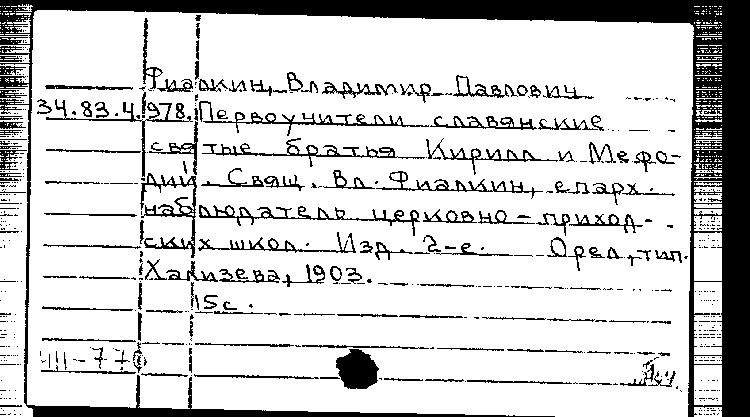 Фиалкин, Владимир Павлович
34.83.4.978. Первоучители славянские
святые братья Кирилл и Мефо-
дий. Свящ. Вл. Фиалкин, епарх.
наблюдатель церковно-приход-
ских школ. Изд. 2-е. Орел, тип.
Хализева, 1903.
15с.